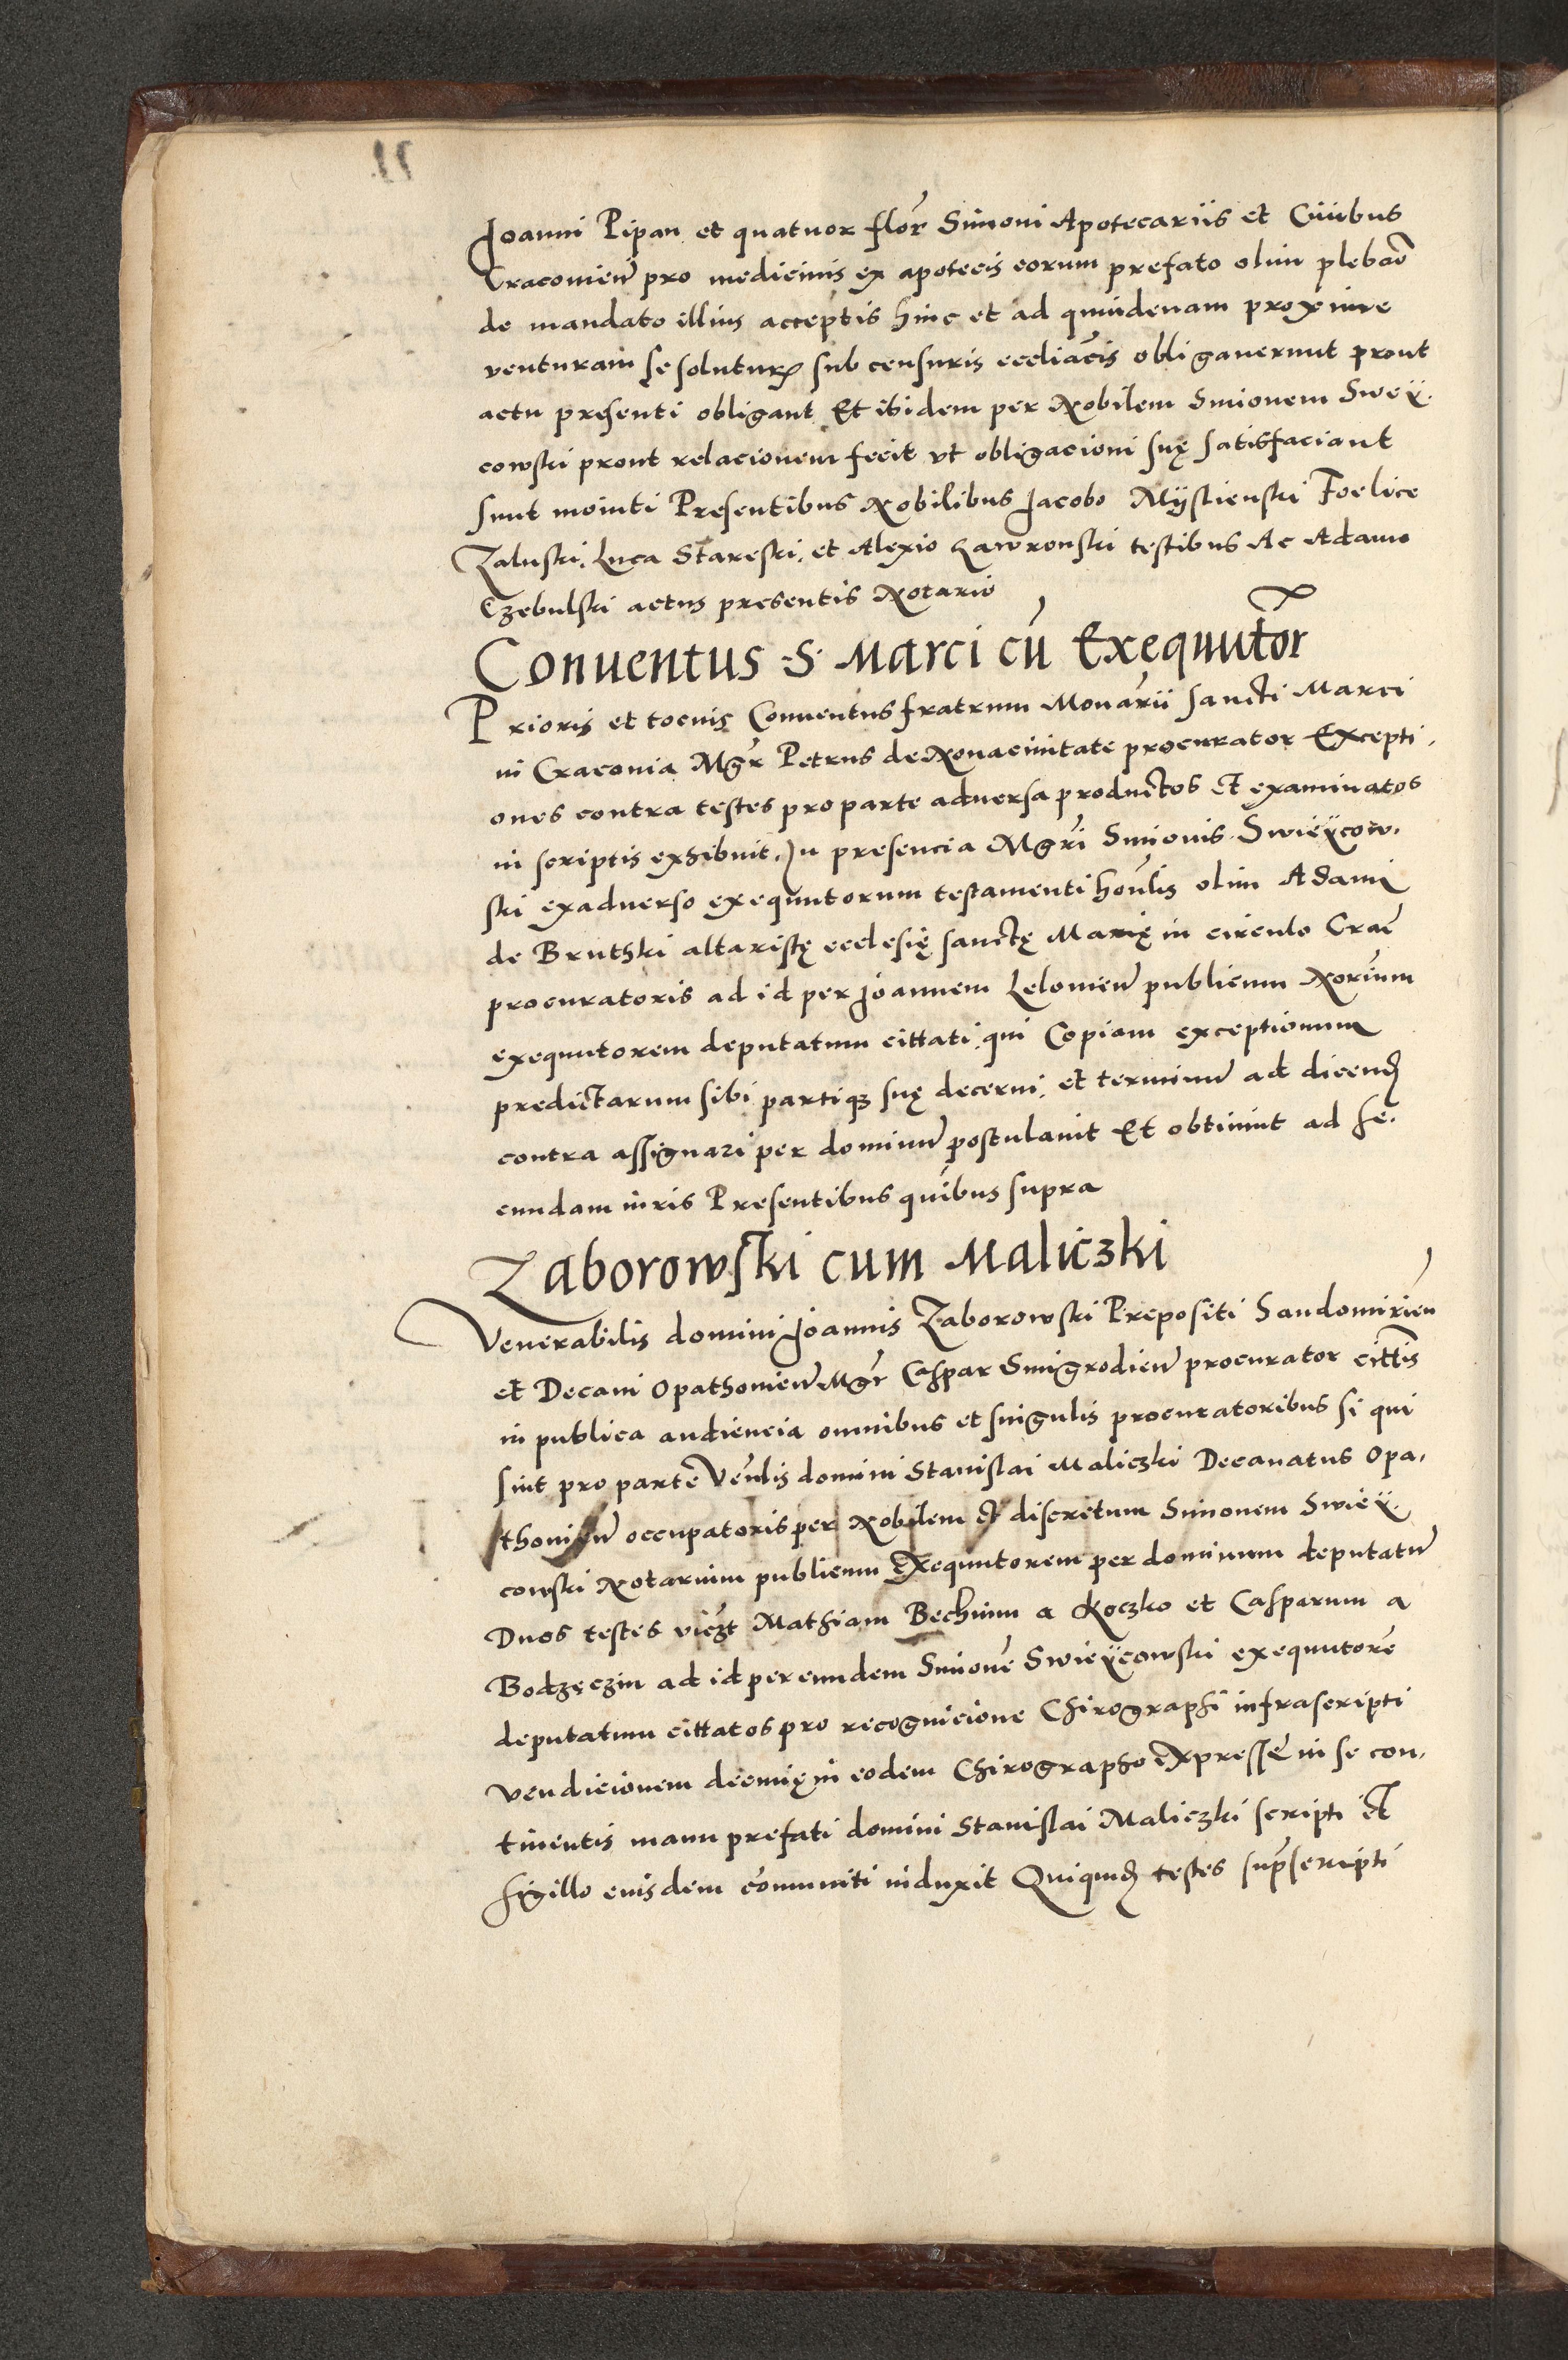 Joanni Pipan et quatuor flor̃ Simoni Apotecariis et Ciuibus
Cracouieñ pro medicinis ex apotecis eorum prefato olim plebãо
de mandato illius acceptis hinc et ad quindenam proxime
venturam se soluturꝝ sub censuris eccliãcis obligauerunt prout
actu presenti obligant Et ibidem per Nobilem Simonem Swey.
cowski prout relacionem fecit vt obligacioni suę satisfaciant
sunt moniti Presentibus Nobilibus Jacobo Mÿstienski Foelice
Zaluski, Luca Stareski, et Alexio Lawronski testibus Ac Adamo
Czebulski actus presentis Notario
Conuentus .S. Marci cũ Exequutor̃
Prioris et tocius Conuentus fratrum Monãrii sancti Marci
in Craconia Mgr̃ Petrus de Nouaciuitate procurator Excepti.
ones contra testes pro parte aduersa productos et examinatos
in scriptis exhibuit, In presencia Mgr̃i Simonis Swieÿcow.
ski exaduerso exequutorum testamenti hoñlis olim Adami
de Bruthki altaristę ecclesię sanctę Marię in circulo Crac̃
procuratoris ad id per Joannem Leloñieñ publicum Norĩum
exequutorem deputatum cittati, qui Copiam exceptionum
predictarum sibi partiqꝫ suę decerni, et terminũ ad dicenđ
contra assignari per dominũ postulauit Et obtinuit ad se.
cundam iuris Presentibus quibus supra
Zaborowski cum Maliczki
Venerabilis domini Joannis Zaborowski Prepositi Sandomirieñ
et Decani Opathouieñ Mgr̃ Caspar Smigrodieñ procurator cittĩs
in publica audiencia omnibus et singulis procuratoribus si qui
sint pro parte Veñlis domini Stanislai Maliczki Decanatus Opa.
thouieñ occupatoris per Nobilem et discretum Simonem Swieÿ.
cowski Notarium publicum Exequutorem per dominum deputatũ
Duos testes vicꝫt Mathiam Bechinm a Koczko et Casparum a
Bodzęczin ad id per eundem Simonẽ Swieÿcowski exequutorẽ
deputatum cittatos pro recognicione Chirographi infrascripti
vendicionem decimę in eodem Chirographo expressę in se con.
tinentis manu prefati domini Stanislai Maliczki scripti et
sigillo eiusdem cõmuniti induxit Quiquiđ testes suprãscripti